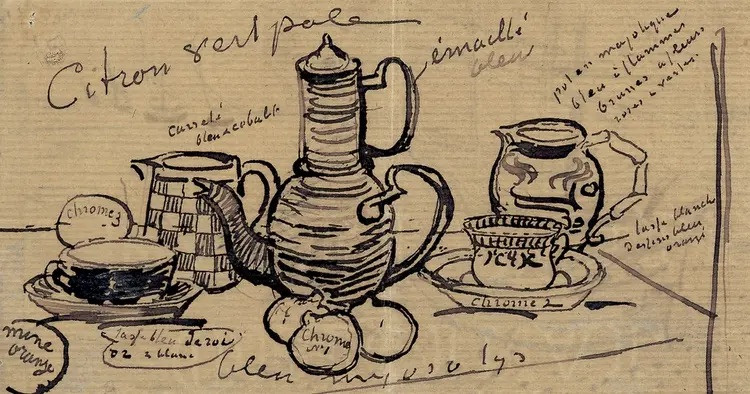 Citron vert pale
émaillé
bleu
pot en majolique
bleu à flammes
brunes & fleurs
roses & vertes
carrelé
bleu & cobalt
chrome 3
tasse blanche
dessins bleu
orangé
chrome 2
mine
orange
tasse bleu de roi
or & blanc
Chrome
n° 1
bleu myosotys